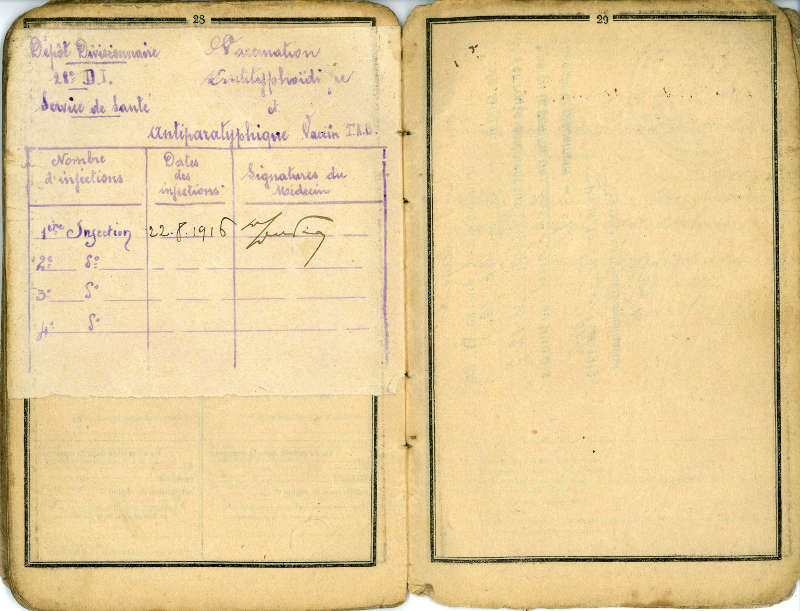 28
Dépôt Divisionnaire
28e D.I.
Service de Santé
Vaccination
Antityphoïdique
et
Antiparatyphique Vaccin T.A.B.
Nombre d'injections
Dates des injections
Signatures du Médecin
1ère Injection 22.8.1916
2e do
3e do
4e do
29